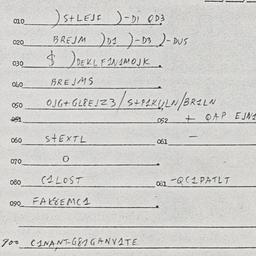 010 )S+LEJS )-DI QD3
020 BREJM )D1 )-D3 )-DUS
030 $ )DEKLF1N1MOJK
040 BREJMS
050 OJG+GL8EJZ3/S+P1KULN/BR1LN
051 052 + OAP EJN1
060 S+EXTL 061 —
070 O
080 C1LOST 081 -QC1PATLT
090 FAK8EMC1
900 C1NANT-G81GANV1TE